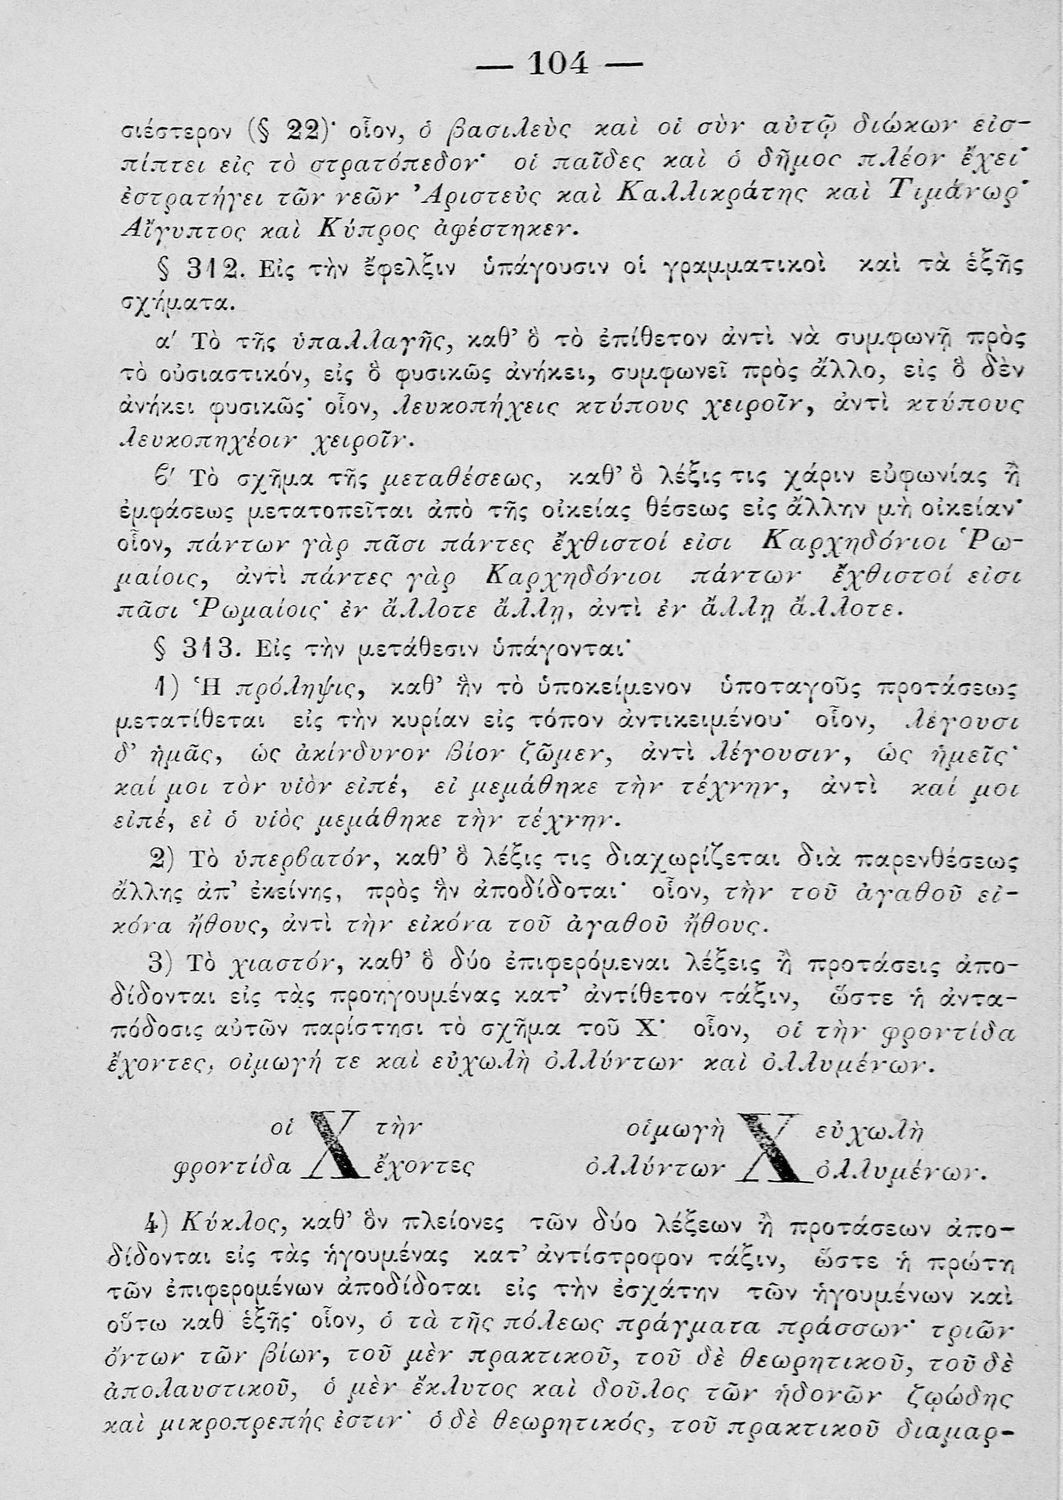 — 104 —
σιέστερον (§ 22)· οἷον, ὁ βασιλεὺς καὶ οἱ σὺν αὐτῷ διώκων εἰσ-
πίπτει εἰς τὸ στρατόπεδον· οἱ παῖδες καὶ ὁ δῆμος πλέον ἔχει·
ἐστρατήγει τῶν νεῶν Ἀριστεὺς καὶ Καλλικράτης καὶ Τιμάνωρ·
Αἴγυπτος καὶ Κύπρος ἀφέστηκεν.
§ 312. Εἰς τὴν ἔφελξιν ὑπάγουσιν οἱ γραμματικοὶ καὶ τὰ ἑξῆς
σχήματα.
α′ Τὸ τῆς ὑπαλλαγῆς, καθ’ ὃ τὸ ἐπίθετον ἀντὶ νὰ συμφωνῇ πρὸς
τὸ οὐσιαστικόν, εἰς ὃ φυσικῶς ἀνήκει, συμφωνεῖ πρὸς ἄλλο, εἰς ὃ δὲν
ἀνήκει φυσικῶς· οἷον, λευκοπήχεις κτύπους χειροῖν, ἀντὶ κτύπους
λευκοπηχέοιν χειροῖν.
ϐ′ Τὸ σχῆμα τῆς μεταθέσεως, καθ’ ὃ λέξις τις χάριν εὐφωνίας ἢ
ἐμφάσεως μετατοπεῖται ἀπὸ τῆς οἰκείας θέσεως εἰς ἄλλην μὴ οἰκείαν·
οἷον, πάντων γὰρ πᾶσι πάντες ἔχθιστοί εἰσι Καρχηδόνιοι Ῥω-
μαίοις, ἀντὶ πάντες γὰρ Καρχηδόνιοι πάντων ἔχθιστοί εἰσι
πᾶσι Ῥωμαίοις· ἐν ἄλλοτε ἄλλῃ, ἀντὶ ἐν ἄλλῃ ἄλλοτε.
§ 313. Εἰς τὴν μετάθεσιν ὑπάγονται·
1) Ἡ πρόληψις, καθ’ ἣν τὸ ὑποκείμενον ὑποταγοῦς προτάσεως
μετατίθεται εἰς τὴν κυρίαν εἰς τόπον ἀντικειμένου· οἷον, λέγουσι
δ’ ἡμᾶς, ὡς ἀκίνδυνον βίον ζῶμεν, ἀντὶ λέγουσιν, ὡς ἡμεῖς·
καί μοι τὸν υἱὸν εἰπέ, εἰ μεμάθηκε τὴν τέχνην, ἀντὶ καί μοι
εἰπέ, εἰ ὁ υἱὸς μεμάθηκε τὴν τέχνην.
2) Τὸ ὑπερϐατόν, καθ’ ὃ λέξις τις διαχωρίζεται διὰ παρενθέσεως
ἄλλης ἀπ’ ἐκείνης, πρὸς ἣν ἀποδίδοται· οἷον, τὴν τοῦ ἀγαθοῦ εἰ-
κόνα ἤθους, ἀντὶ τὴν εἰκόνα τοῦ ἀγαθοῦ ἤθους.
3) Τὸ χιαστόν, καθ’ ὃ δύο ἐπιφερόμεναι λέξεις ἢ προτάσεις ἀπο-
δίδονται εἰς τὰς προηγουμένας κατ’ ἀντίθετον τάξιν, ὥστε ἡ ἀντα-
πόδοσις αὐτῶν παρίστησι τὸ σχῆμα τοῦ Χ· οἷον, οἱ τὴν φροντίδα
ἔχοντες, οἰμωγή τε καὶ εὐχωλὴ ὀλλύντων καὶ ὀλλυμένων.
οἱ Χ τὴν οἰμωγὴ Χ εὐχωλὴ
φροντίδα ἔχοντες ὀλλύντων ὀλλυμένων.
4) Κύκλος, καθ’ ὃν πλείονες τῶν δύο λέξεων ἢ προτάσεων ἀπο-
δίδονται εἰς τὰς ἡγουμένας κατ’ ἀντίστροφον τάξιν, ὥστε ἡ πρώτη
τῶν ἐπιφερομένων ἀποδίδοται εἰς τὴν ἐσχάτην τῶν ἡγουμένων καὶ
οὕτω καθ ἑξῆς· οἷον, ὁ τὰ τῆς πόλεως πράγματα πράσσων· τριῶν
ὄντων τῶν βίων, τοῦ μὲν πρακτικοῦ, τοῦ δὲ θεωρητικοῦ, τοῦ δὲ
ἀπολαυστικοῦ, ὁ μὲν ἔκλυτος καὶ δοῦλος τῶν ἡδονῶν ζῳώδης
καὶ μικροπρεπής ἐστιν· ὁ δὲ θεωρητικός, τοῦ πρακτικοῦ διαμαρ-